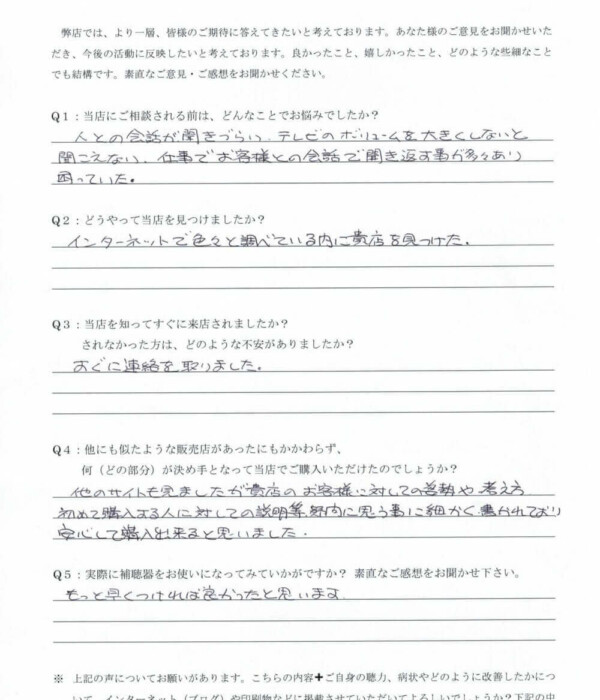 弊店では、より一層、皆様のご期待に答えてきたいと考えております。あなた様のご意見をお聞かせいた
だき、今後の活動に反映したいと考えております。良かったこと、嬉しかったこと、どのような些細なこと
でも結構です。素直なご意見・ご感想をお聞かせください。
Q1：当店にご相談される前は、どんなことでお悩みでしたか？
人との会話が聞きづらい、テレビのボリュームを大きくしないと
聞こえない、仕事でお客様との会話で聞き返す事が多々あり
困っていた。
Q2：どうやって当店を見つけましたか？
インターネットで色々と調べている内に貴店を見つけた。
Q3：当店を知ってすぐに来店されましたか？
されなかった方は、どのような不安がありましたか？
すぐに連絡を取りました。
Q4：他にも似たような販売店があったにもかかわらず、
何（どの部分）が決め手となって当店でご購入いただけたのでしょうか？
他のサイトも見ましたが貴店のお客様に対しての姿勢や考え方
初めて購入する人に対しての説明等 に思う事に細かく書かれており
安心して購入出来ると思いました。
Q5：実際に補聴器をお使いになってみていかがですか？ 素直なご感想をお聞かせ下さい。
もっと早くつければ良かったと思います
※ 上記の声についてお願いがあります。こちらの内容＋ご自身の聴力、病状やどのように改善したかにつ
いて、インターネット（ブログ）や印刷物などに掲載させていただいてよろしいでしょうか？下記の中